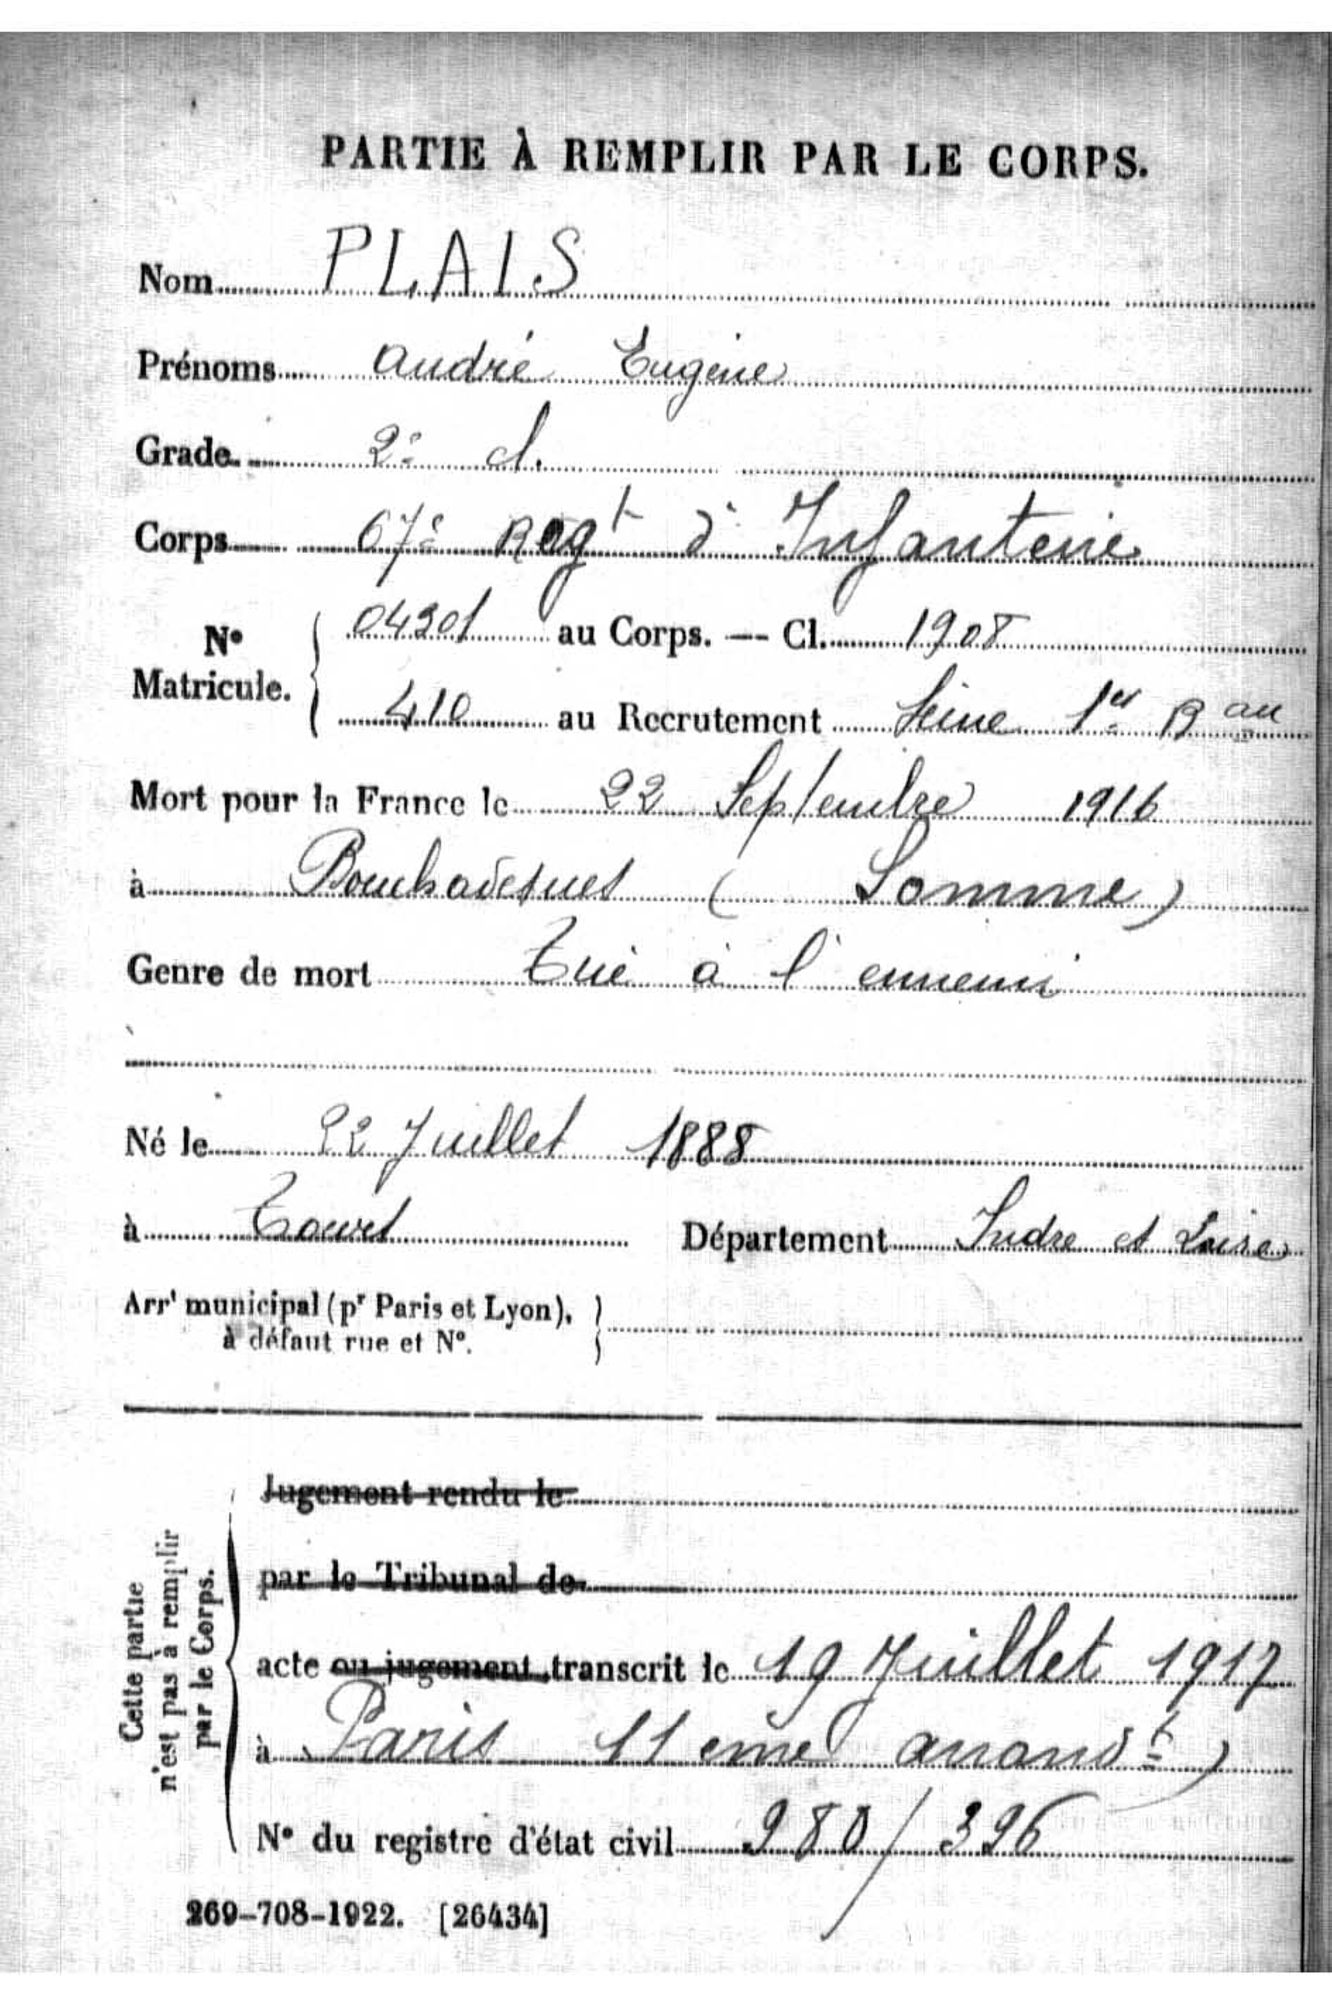 PARTIE À REMPLIR PAR LE CORPS.
Nom PLAIS
Prénoms André Eugène
Grade 2e cl.
Corps 67e Regt d'Infanterie
No Matricule. { 04301 au Corps. — Cl. 1908
410 au Recrutement Seine 1er Bau
Mort pour la France le 22 Septembre 1916
à Bouchavesnes (Somme)
Genre de mort Tué à l'ennemi
Né le 22 Juillet 1888
à Tours Département Indre et Loire
Arrt municipal (pr Paris et Lyon),
à défaut rue et No.
Cette partie
n'est pas à remplir
par le Corps.
Jugement rendu le
par le Tribunal de
acte ou jugement transcrit le 19 Juillet 1917
à Paris 11ème arrondt)
No du registre d'état civil 980/396
269-708-1922. [26434]